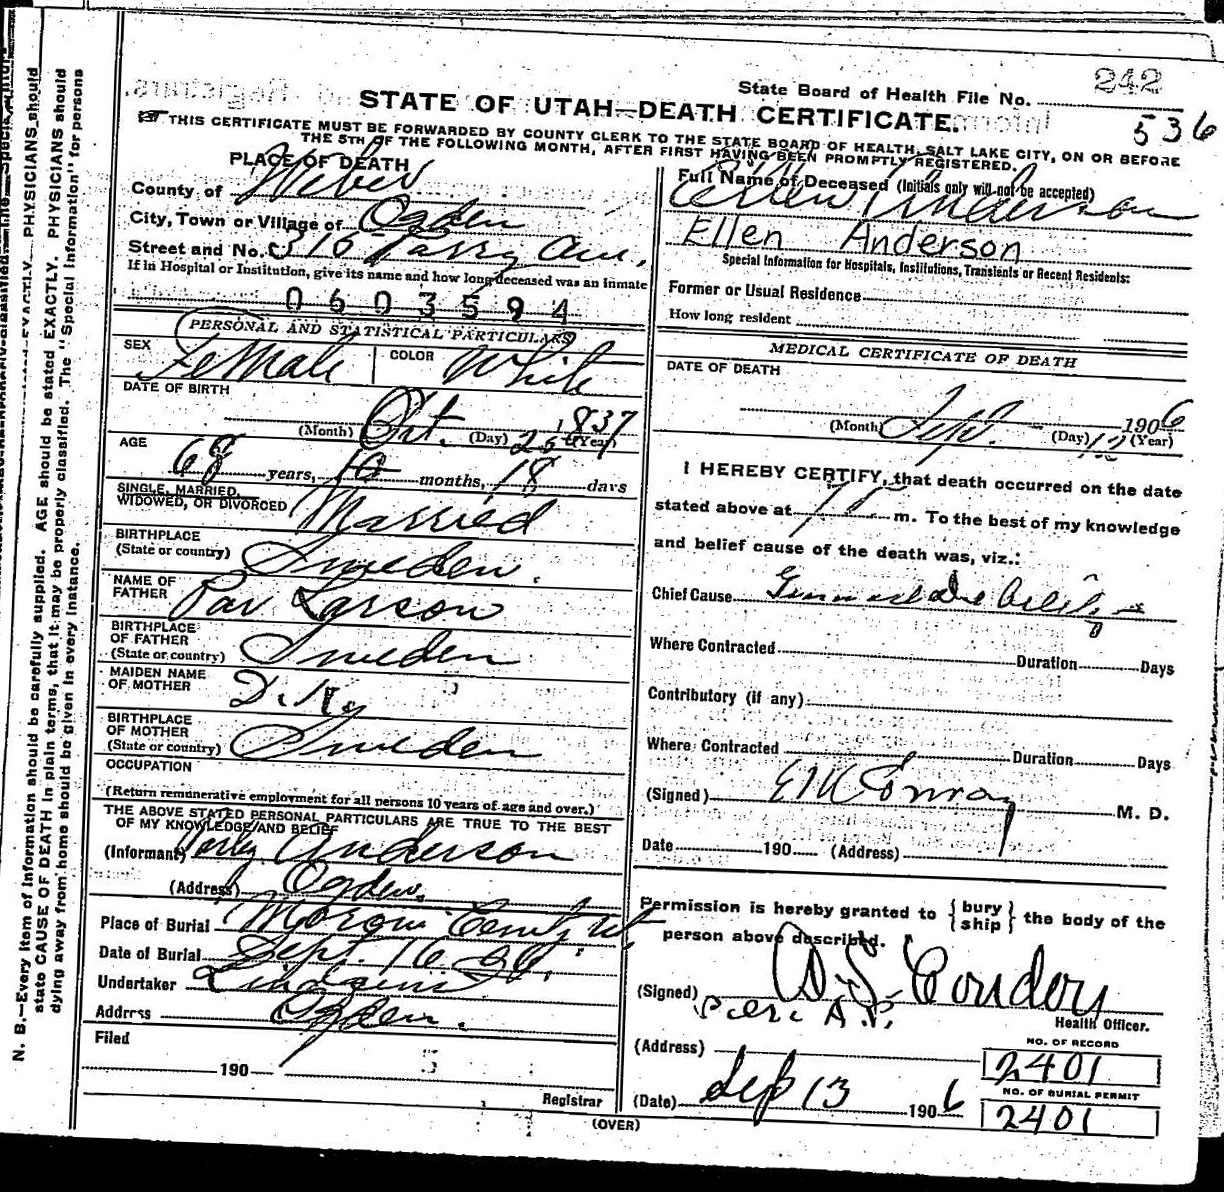 State Board of Health File No. 242
536
STATE OF UTAH—DEATH CERTIFICATE.
THIS CERTIFICATE MUST BE FORWARDED BY COUNTY CLERK TO THE STATE BOARD OF HEALTH, SALT LAKE CITY, ON OR BEFORE
THE 5TH OF THE FOLLOWING MONTH, AFTER FIRST HAVING BEEN PROMPTLY REGISTERED.
PLACE OF DEATH
County of Weber
City, Town or Village of Ogden
Street and No. 316 Parry Ave.
If in Hospital or Institution, give its name and how long deceased was an inmate
0603594
PERSONAL AND STATISTICAL PARTICULARS
SEX Female COLOR White
DATE OF BIRTH
(Month) Oct. (Day) 25 1837 (Year)
AGE
68 years, 10 months, 18 days
SINGLE, MARRIED,
WIDOWED, OR DIVORCED Married
BIRTHPLACE
(State or country) Sweden.
NAME OF
FATHER Par Larson
BIRTHPLACE
OF FATHER
(State or country) Sweden
MAIDEN NAME
OF MOTHER
BIRTHPLACE
OF MOTHER
(State or country) Sweden
OCCUPATION
(Return remunerative employment for all persons 10 years of age and over.)
THE ABOVE STATED PERSONAL PARTICULARS ARE TRUE TO THE BEST
OF MY KNOWLEDGE AND BELIEF
(Informant) Anderson
(Address) Ogden.
Place of Burial Moroni
Date of Burial Sept. 16 06.
Undertaker
Address Ogden.
Filed
190
Registrar
Full Name of Deceased (Initials only will not be accepted)
Ellen Anderson
Ellen Anderson
Special Information for Hospitals, Institutions, Transients or Recent Residents:
Former or Usual Residence
How long resident
MEDICAL CERTIFICATE OF DEATH
DATE OF DEATH
(Month) Sept. (Day) 12 1906 (Year)
I HEREBY CERTIFY, that death occurred on the date
stated above at m. To the best of my knowledge
and belief cause of the death was, viz.:
Chief Cause
Where Contracted Duration Days
Contributory (if any)
Where Contracted Duration Days
(Signed) E M Conroy M. D.
Date 190 (Address)
Permission is hereby granted to {bury ship} the body of the
person above described.
(Signed)
Health Officer.
(Address)
NO. OF RECORD
2401
NO. OF BURIAL PERMIT
2401
(Date) Sep 13 1906
(OVER)
N. B.—Every item of information should be carefully supplied. AGE should be stated EXACTLY. PHYSICIANS should
state CAUSE OF DEATH in plain terms, that it may be properly classified. The "Special Information" for persons
dying away from home should be given in every instance.